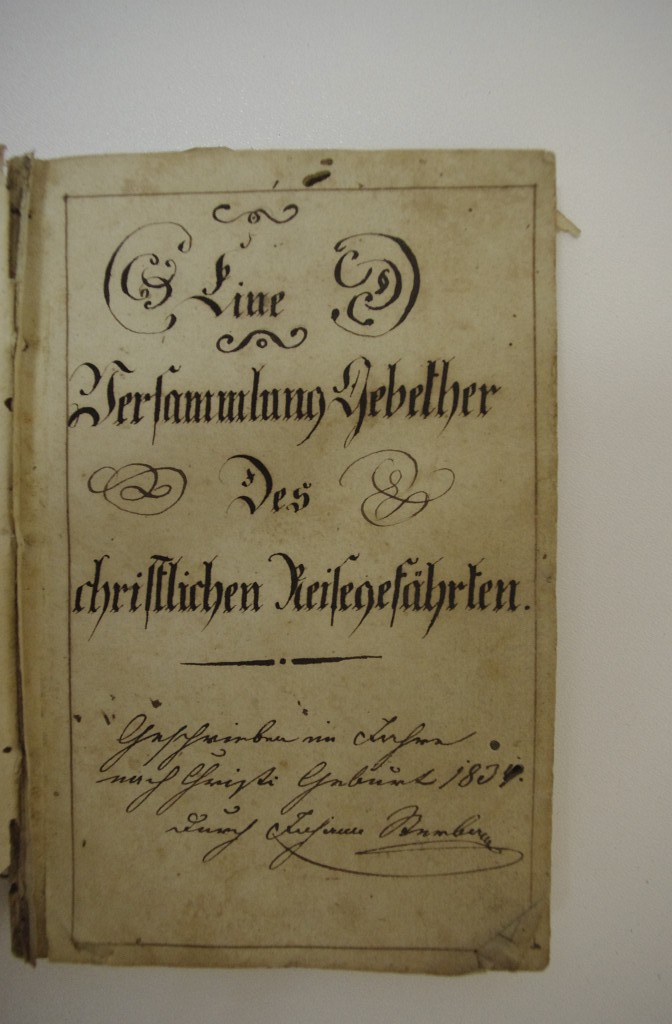 Eine
Versammlung Gebether
Des
christlichen Reisegefährten.
Geschrieben im Jahre
nach Christi Geburt 183
durch Johann